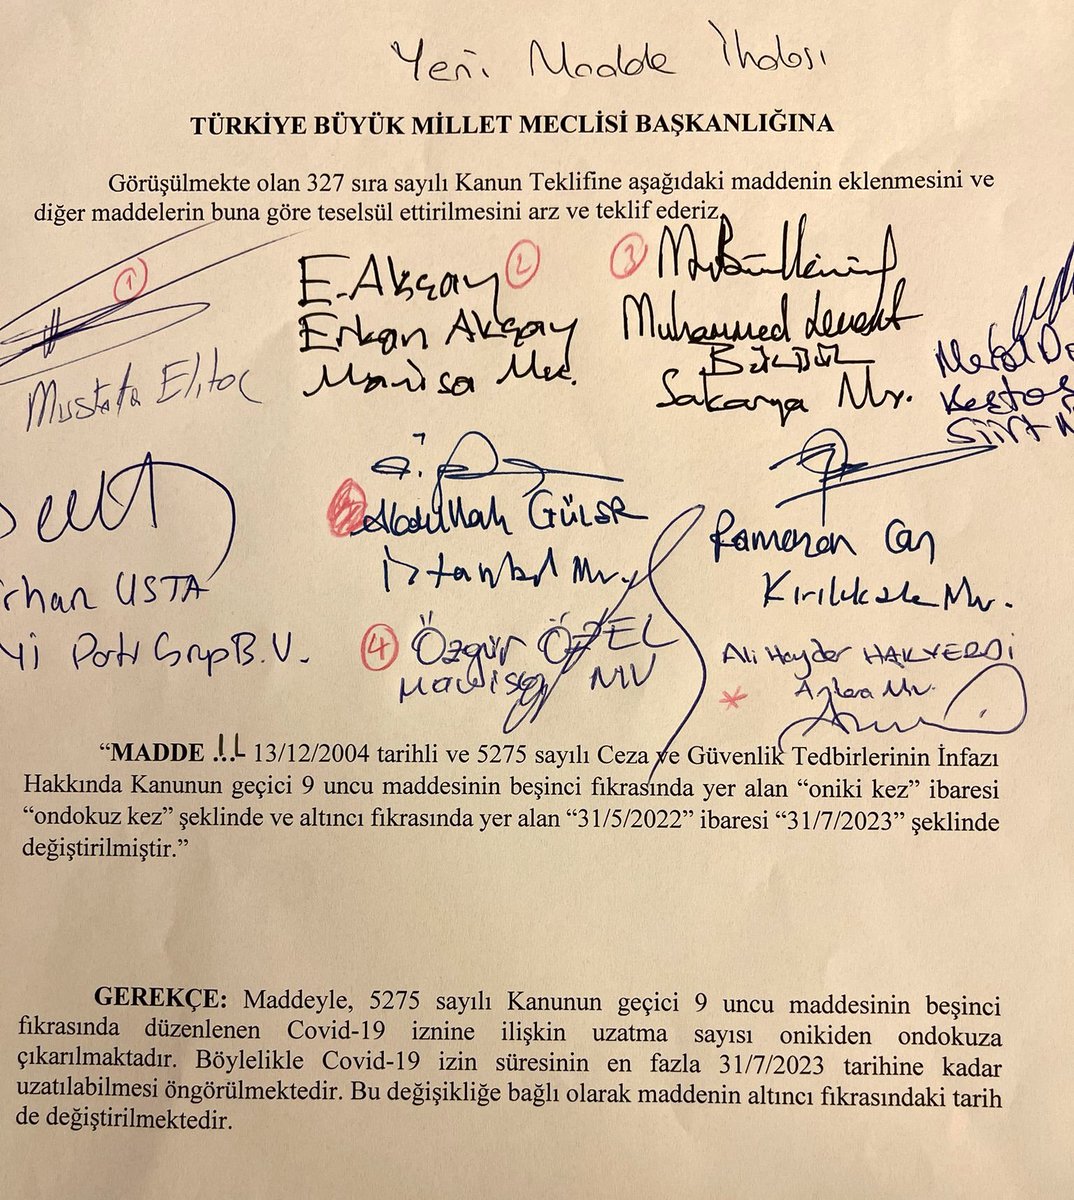 Yeni Madde İhdası
TÜRKİYE BÜYÜK MİLLET MECLİSİ BAŞKANLIĞINA
Görüşülmekte olan 327 sıra sayılı Kanun Teklifine aşağıdaki maddenin eklenmesini ve
diğer maddelerin buna göre teselsül ettirilmesini arz ve teklif ederiz.
1
Mustafa Elitaş
2
E. Akçay
Erkan Akçay
Manisa Mv.
3
Muhammed Levent
BÜLBÜL
Sakarya Mv.
Meral Da
Beştaş
Siirt M
rhan USTA
Yİ Parti Grup B.V.
Abdullah GÜLER
İstanbul Mv.
Ramazan Can
Kırıkkale Mv.
4
Özgür ÖZEL
Manisa MV
Ali Haydar HAKVERDİ
Ankara Mv.
“MADDE 11- 13/12/2004 tarihli ve 5275 sayılı Ceza ve Güvenlik Tedbirlerinin İnfazı
Hakkında Kanunun geçici 9 uncu maddesinin beşinci fıkrasında yer alan “oniki kez” ibaresi
“ondokuz kez” şeklinde ve altıncı fıkrasında yer alan “31/5/2022” ibaresi “31/7/2023” şeklinde
değiştirilmiştir.”
GEREKÇE: Maddeyle, 5275 sayılı Kanunun geçici 9 uncu maddesinin beşinci
fıkrasında düzenlenen Covid-19 iznine ilişkin uzatma sayısı onikiden ondokuza
çıkarılmaktadır. Böylelikle Covid-19 izin süresinin en fazla 31/7/2023 tarihine kadar
uzatılabilmesi öngörülmektedir. Bu değişikliğe bağlı olarak maddenin altıncı fıkrasındaki tarih
de değiştirilmektedir.